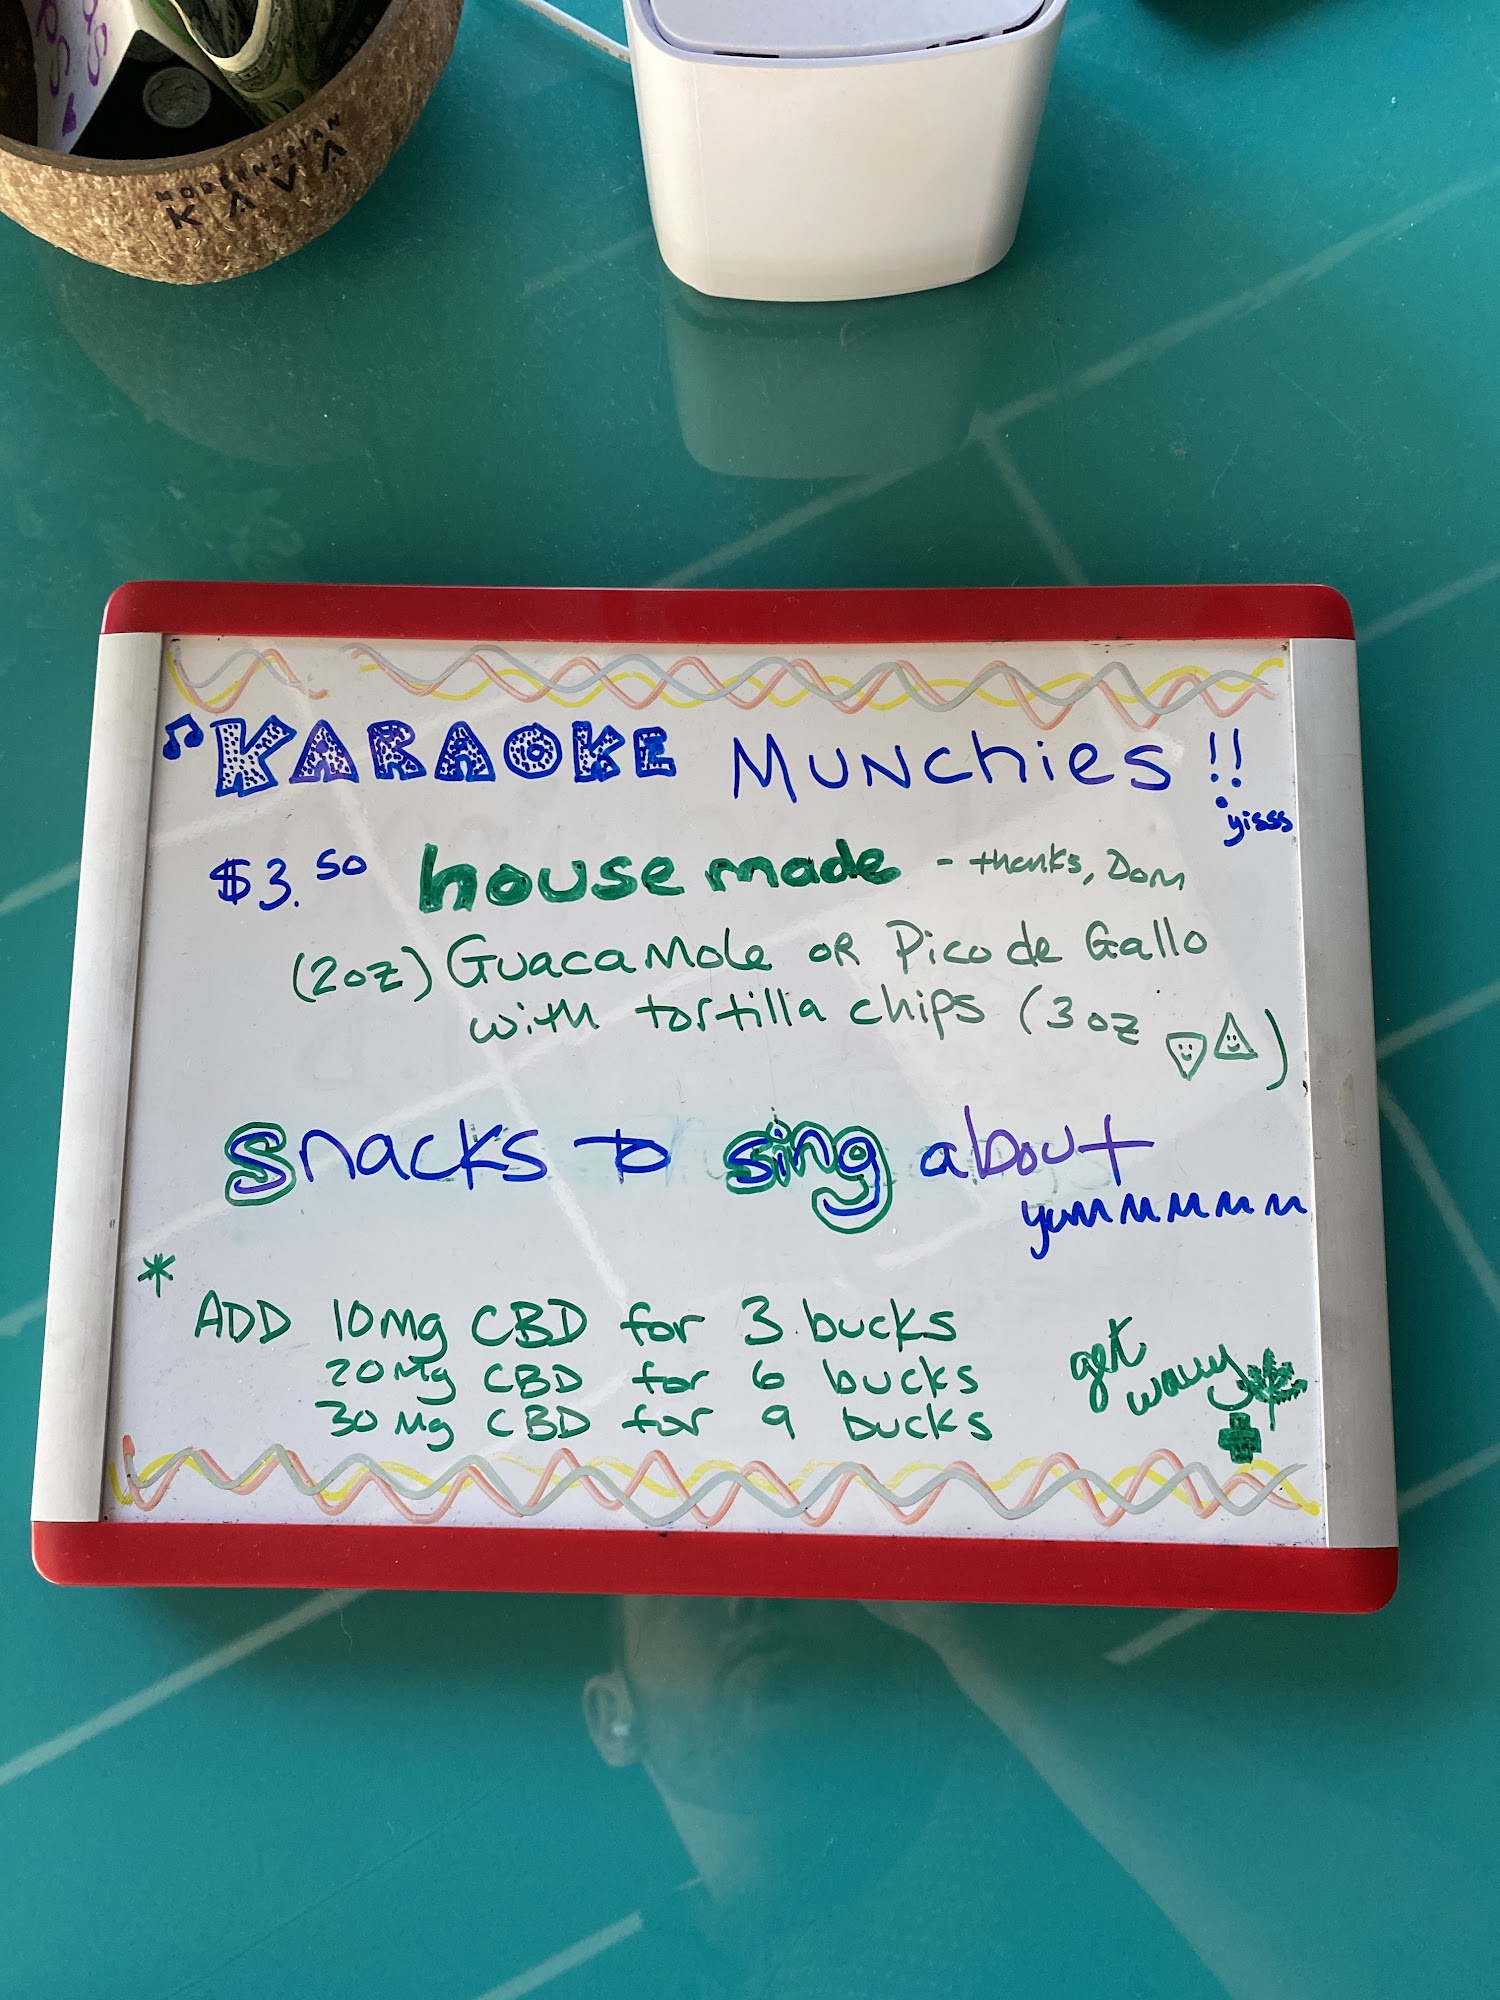 MODERNESIAN
KAVA
KARAOKE MUNchies!!
yisss
$3.50 house made - thanks, Dom
(2oz) GuacaMole OR Pico de Gallo
with tortilla chips (3oz )
Snacks to sing about
yummmmmm
* ADD 10mg CBD for 3 bucks
20mg CBD for 6 bucks
30mg CBD for 9 bucks
get
wavy